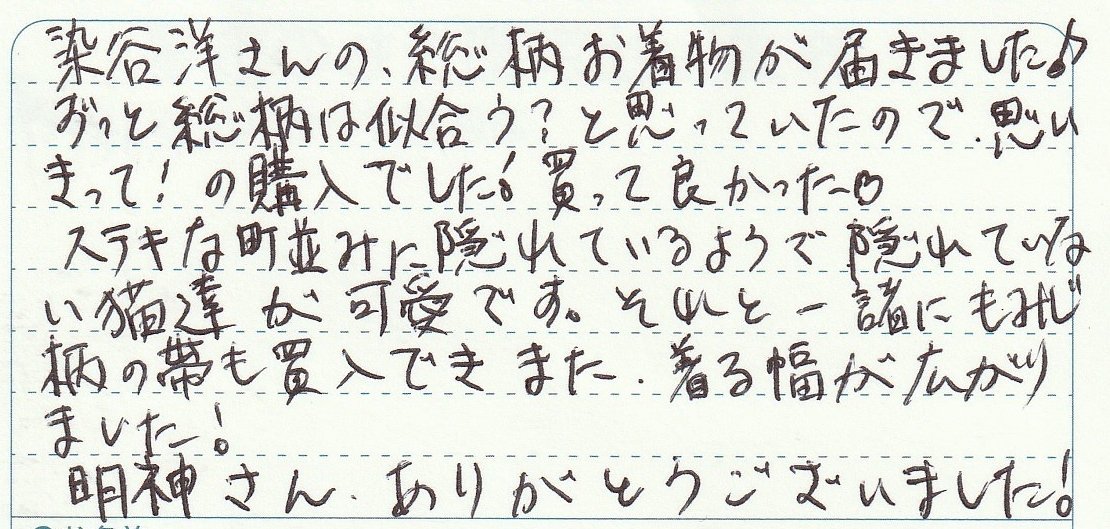 染谷洋さんの、総柄お着物が届きました♪
ずっと総柄は似合う?と思っていたので、思い
きって!の購入でした!買って良かった♡
ステキな町並みに隠れているようで隠れていな
い猫達が可愛です。それと一諸にもみじ
柄の帯も買入できまた、着る幅が広がり
ました!
明神さん、ありがとうございました!